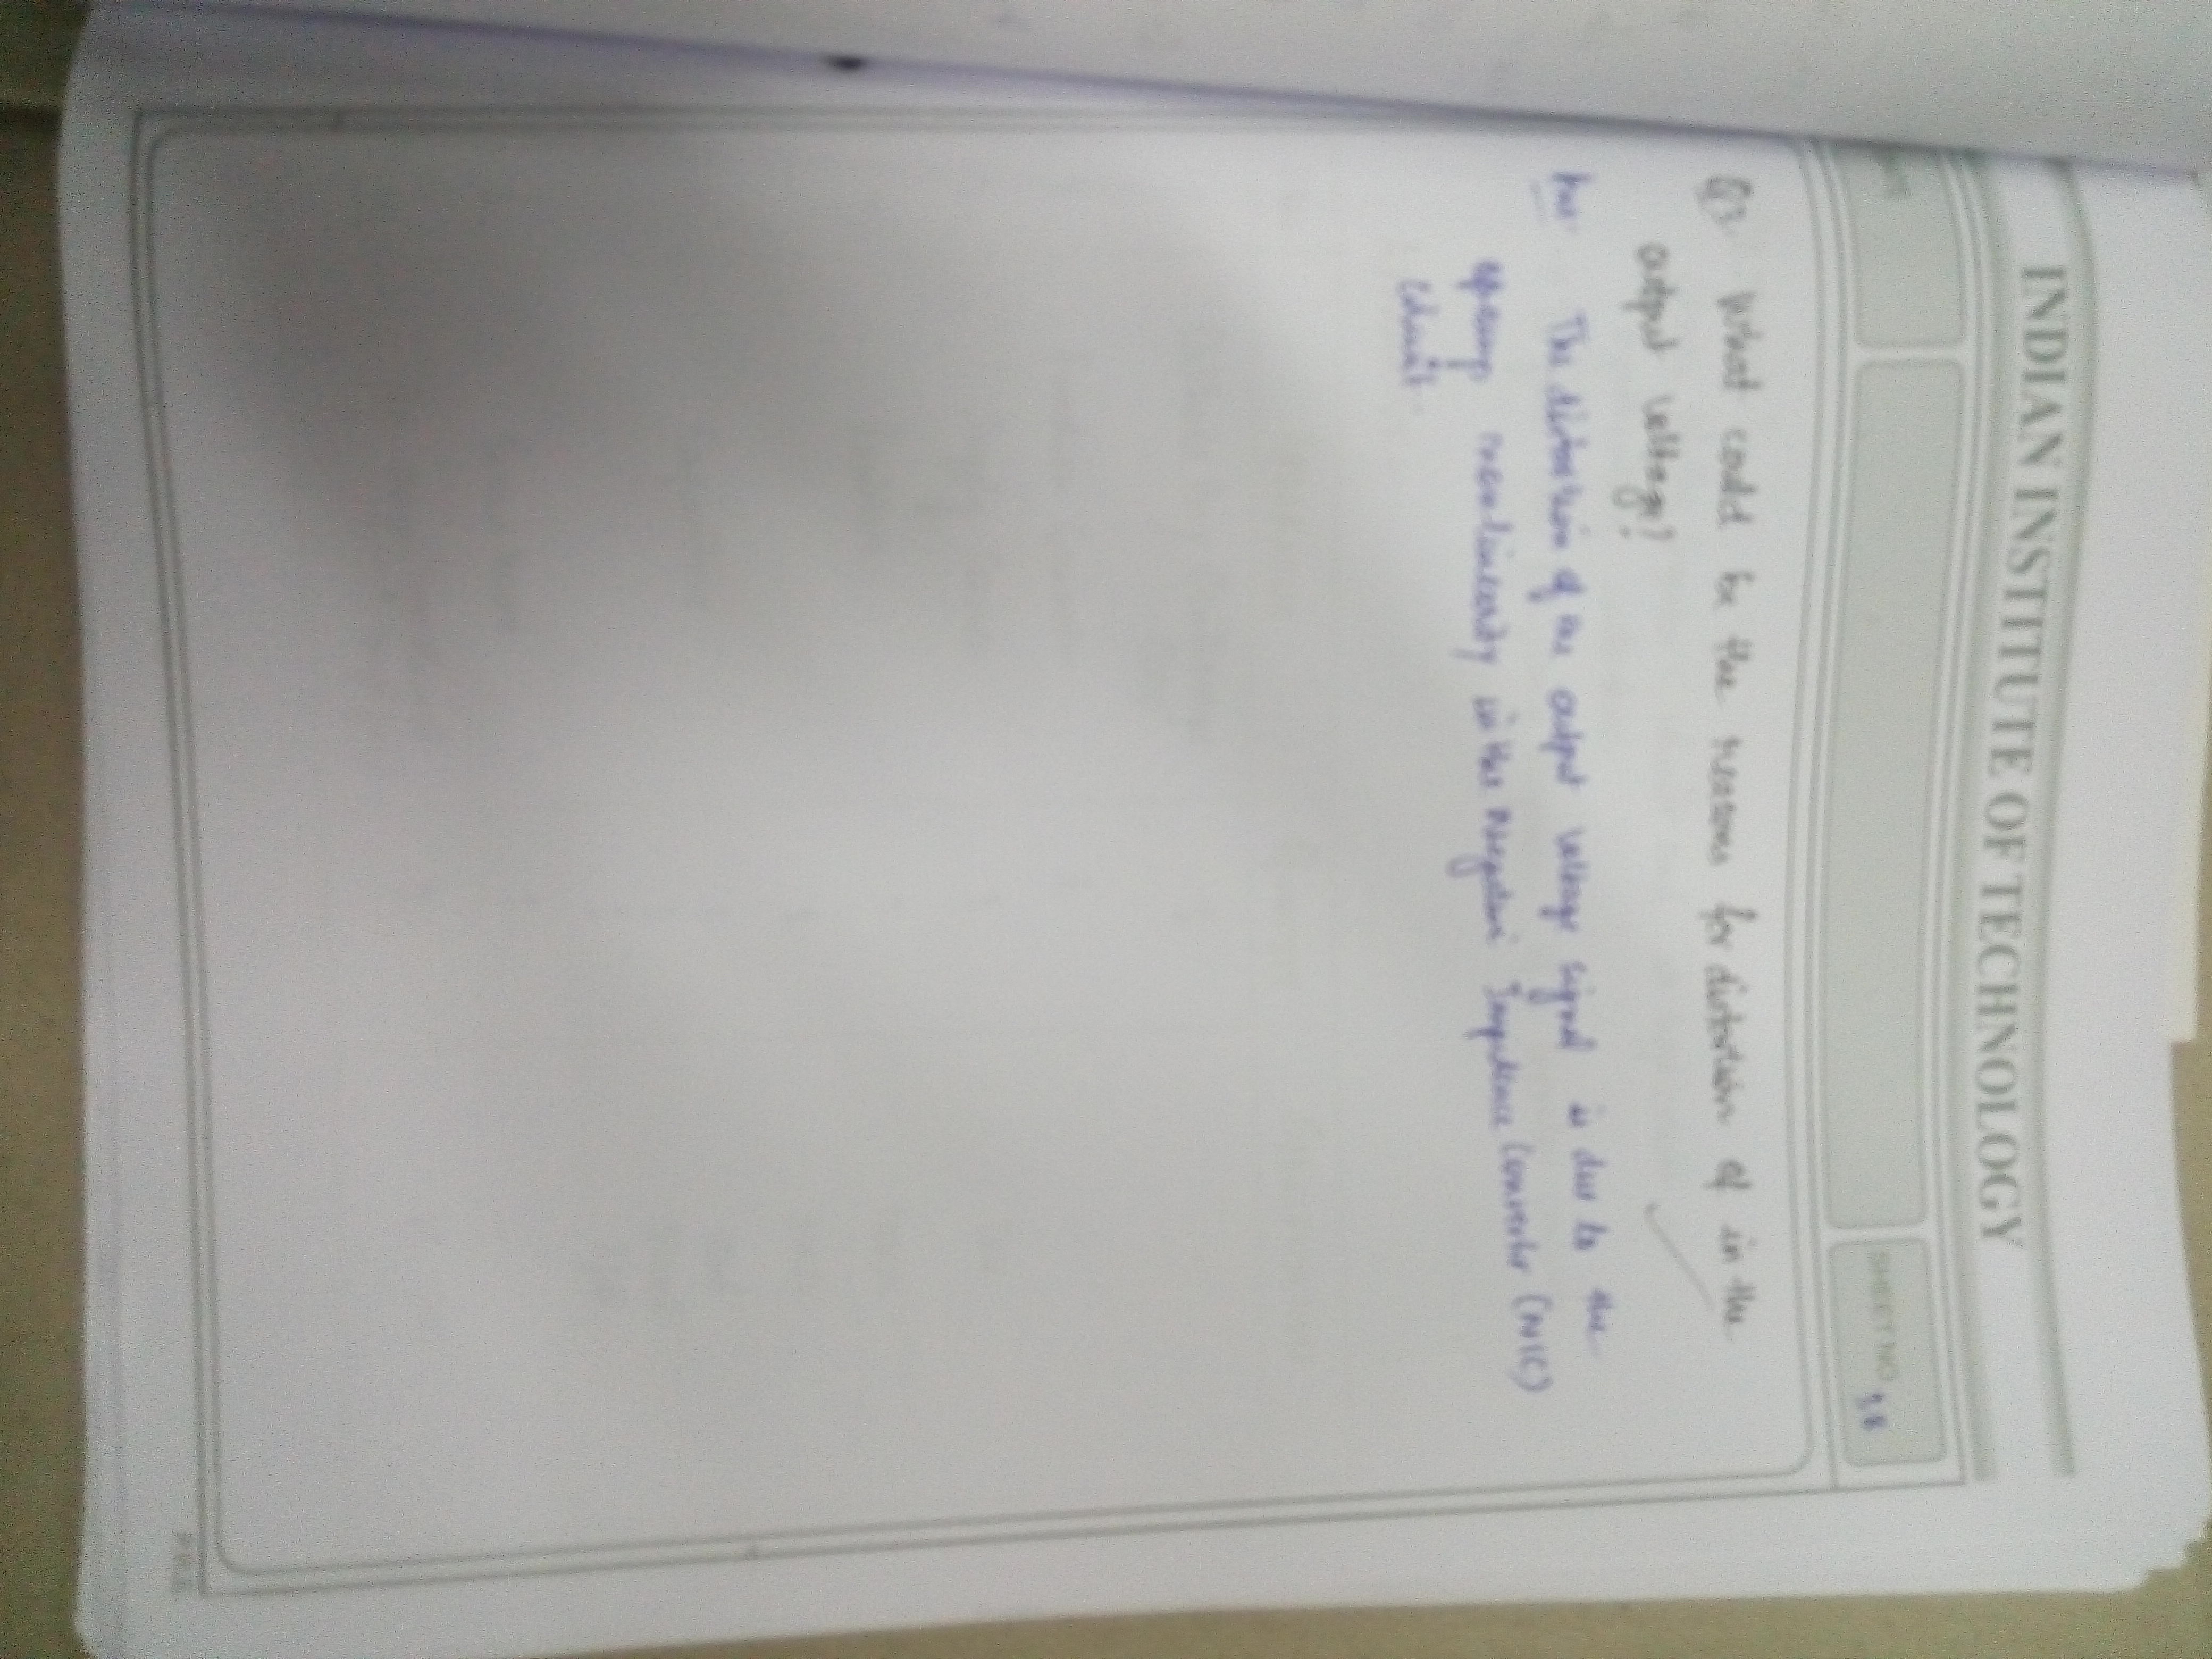 INDIAN INSTITUTE OF TECHNOLOGY
SHEET NO. 38
Q3. What could be the reasons for distortion of in the
output voltage?
Ans. The distortion of the output voltage signal is due to the
opamp nonlinearity in the Negative Impedence Convertor (NIC)
Circuit.